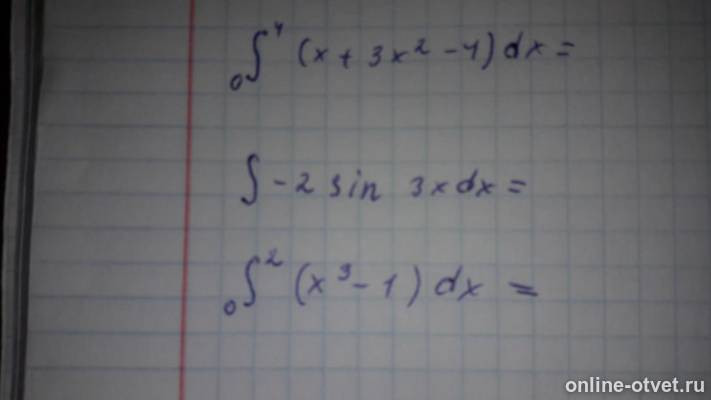 ₀∫⁴ (x + 3x² - 4) dx =
∫ -2 sin 3x dx =
₀∫² (x³ - 1) dx =
online-otvet.ru